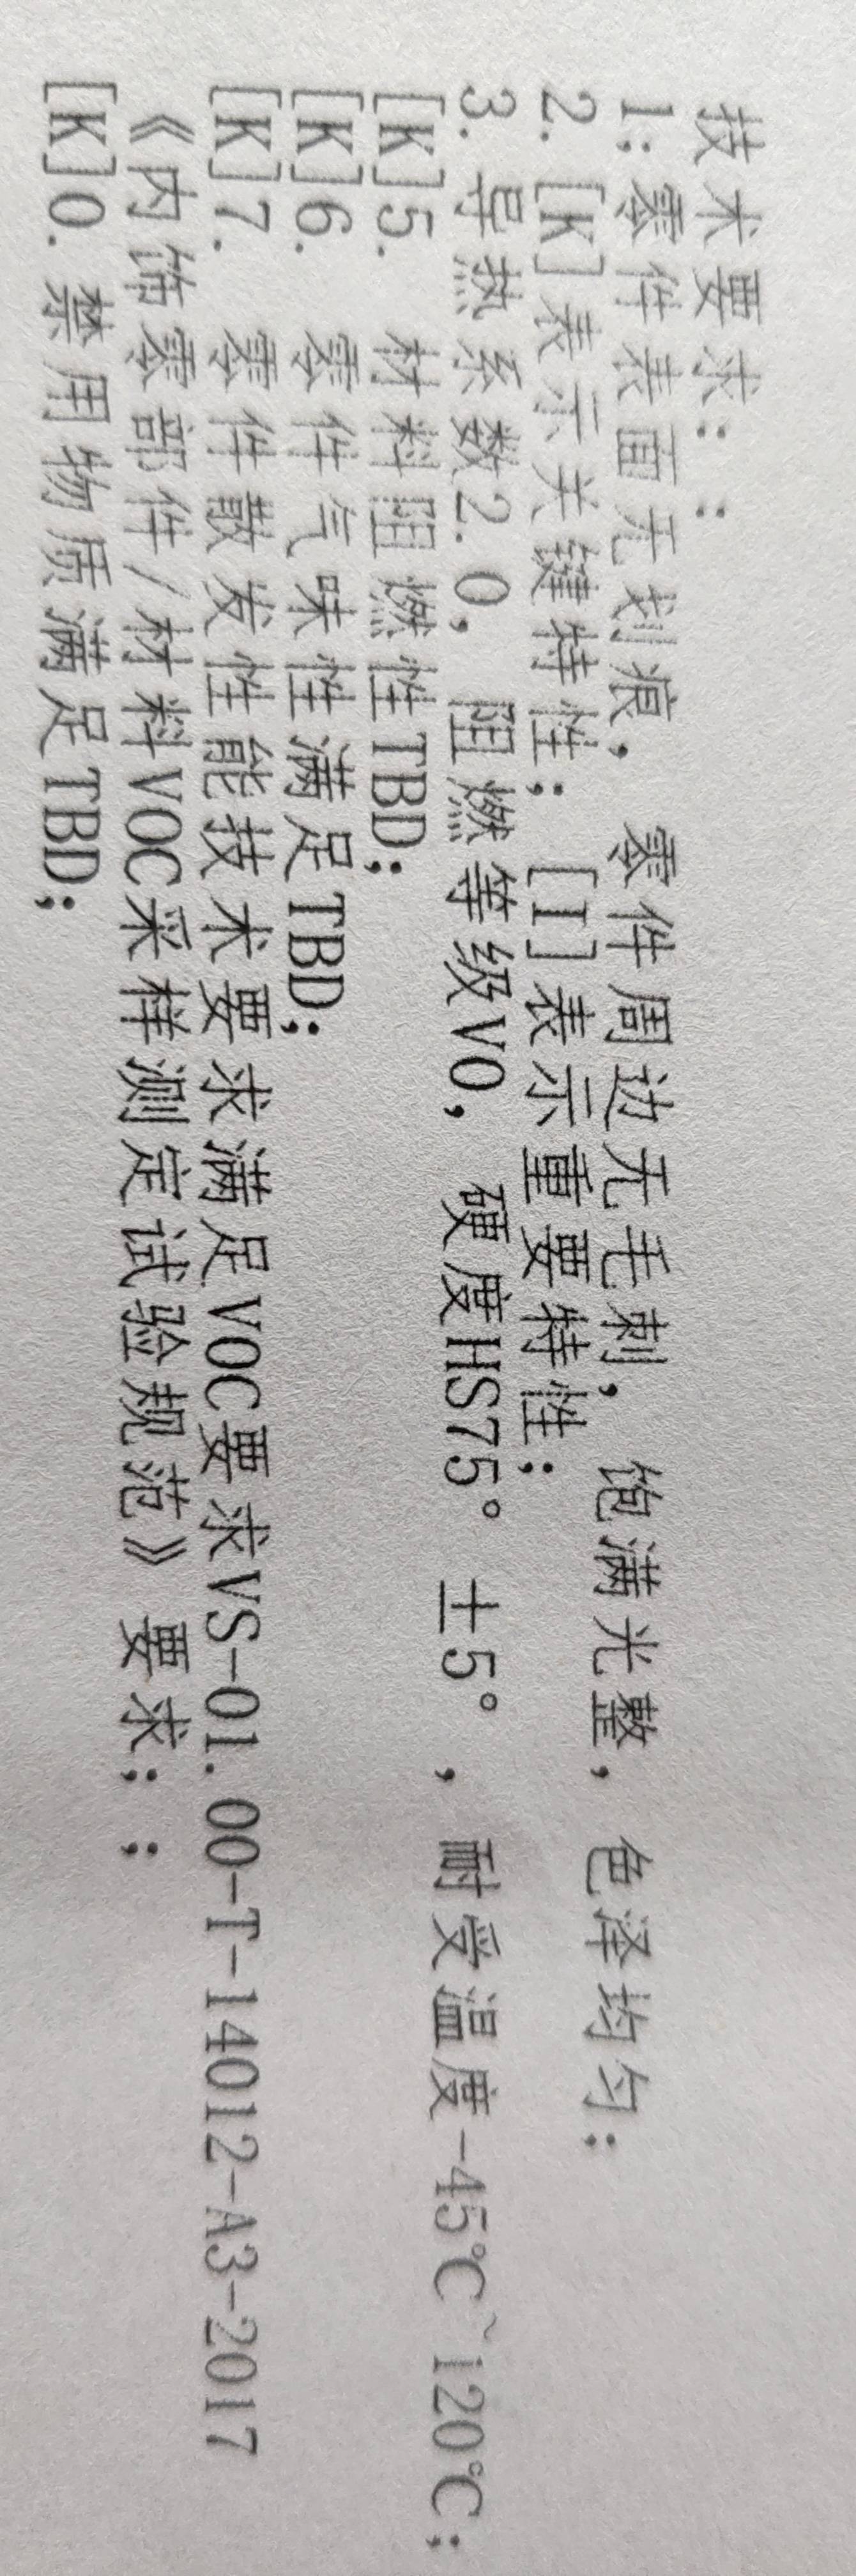 技术要求：：
1：零件表面无划痕， 零件周边无毛刺， 饱满光整，色泽均匀；
2. [K]表示关键特性； [I]表示重要特性；
3. 导热系数2.0， 阻燃等级V0， 硬度HS75° ±5° ，耐受温度-45℃~120℃；
[K]5. 材料阻燃性TBD；
[K]6. 零件气味性满足TBD；
[K]7. 零件散发性能技术要求满足VOC要求VS-01.00-T-14012-A3-2017
《内饰零部件/材料VOC采样测定试验规范》要求；；
[K]0. 禁用物质满足TBD；